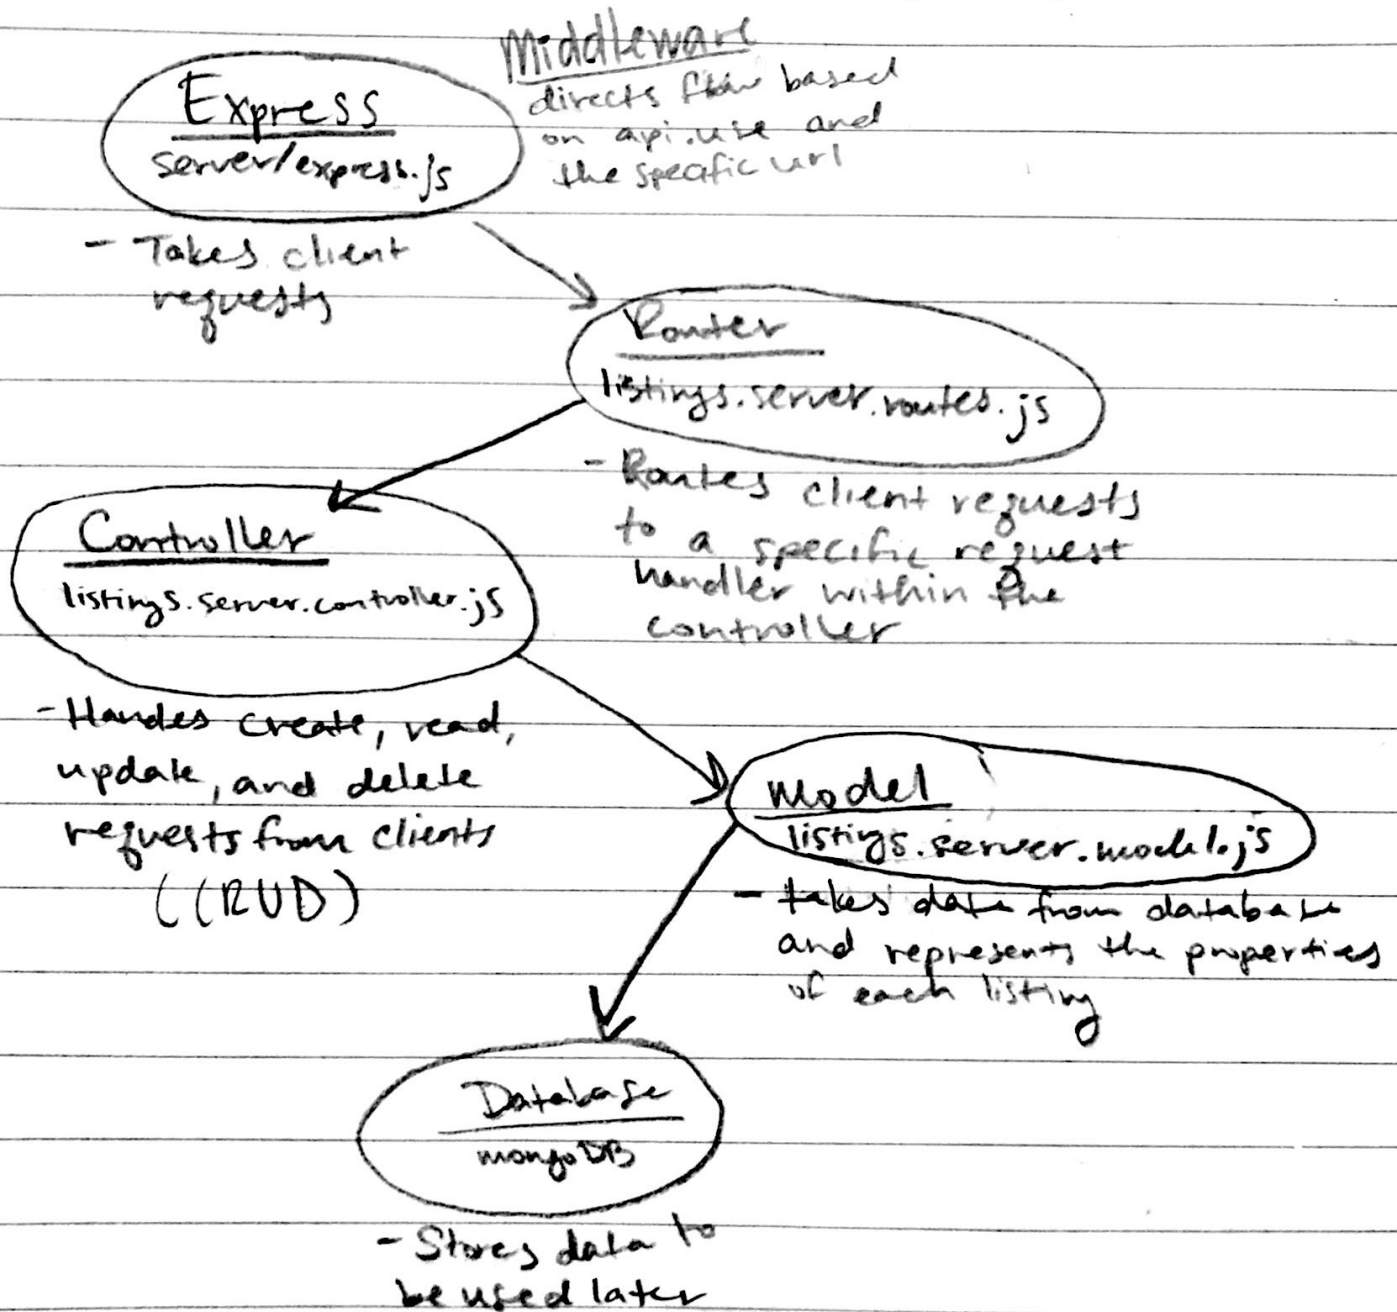 Middleware
directs flow based
on api.use and
the specific url
Express
server/express.js
- Takes client
requests
Router
listings.server.routes.js
- Routes client requests
to a specific request
handler within the
controller
Controller
listings.server.controller.js
- Handes create, read,
update, and delete
requests from clients
((RUD)
Model
listings.server.model.js
- takes data from database
and represents the properties
of each listing
Database
mongoDB
- Stores data to
be used later